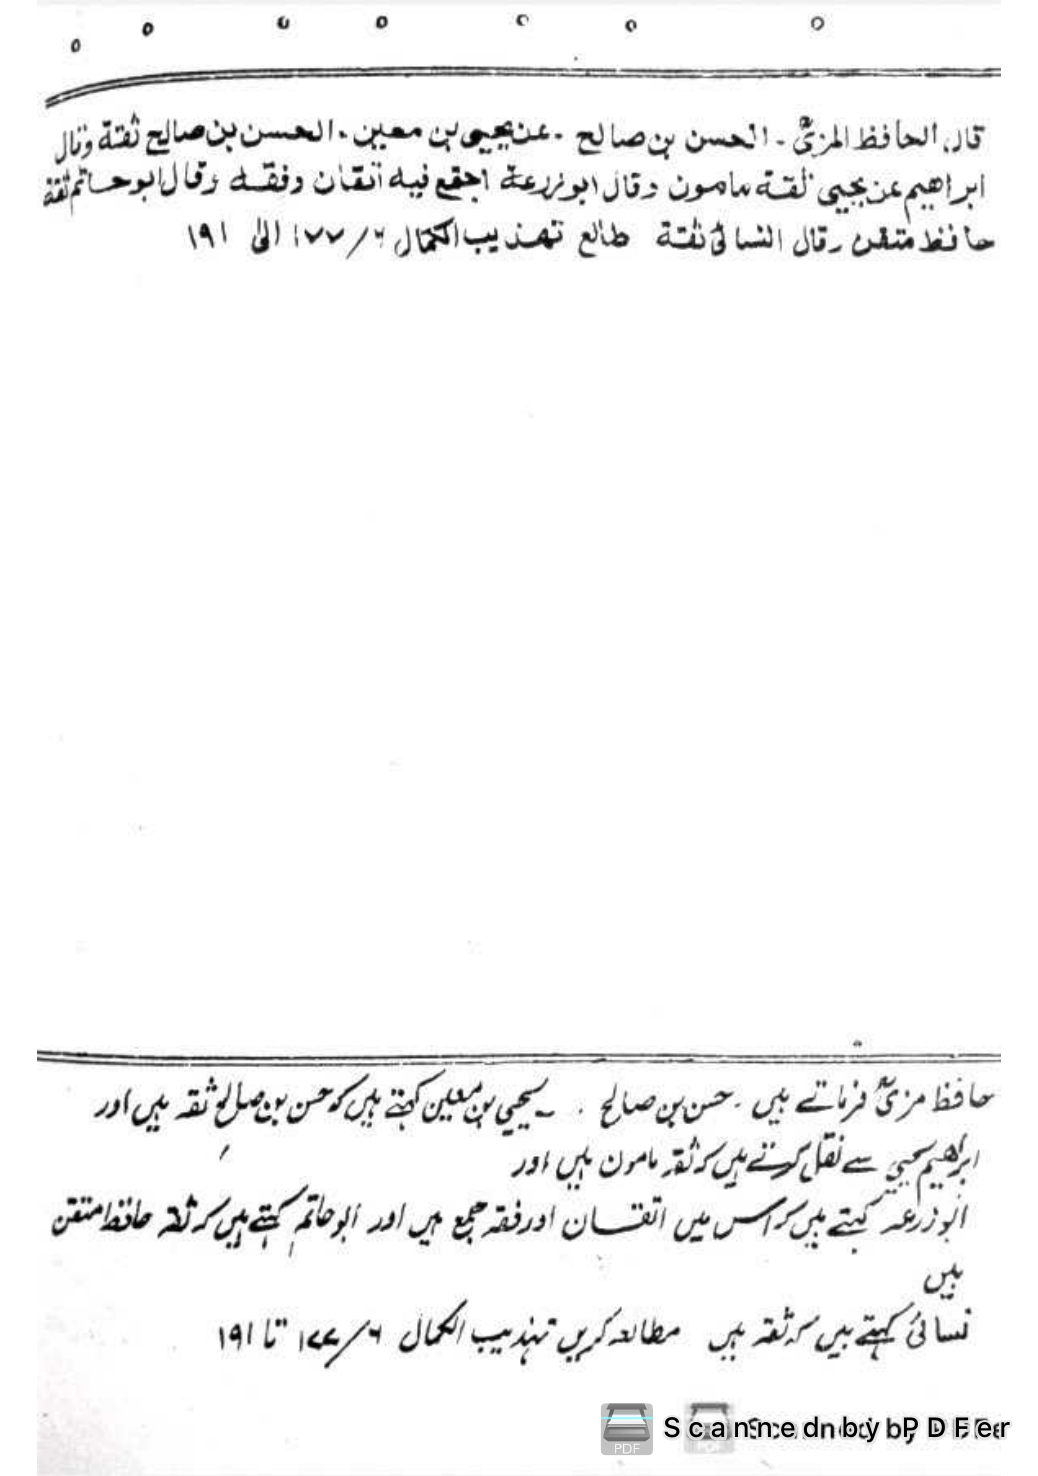 قال الحافظ المزیؒ - الحسن بن صالح - عن یحیی بن معین - الحسن بن صالح ثقة وقال
ابراهیم عن یحیی ثقة مامون وقال ابو زرعة اجتمع فیه اتقان وفقه وقال ابو حاتم ثقة
حافظ متقن وقال النسائی ثقة طالع تهذیب الکمال ۶/۱۷۷ الی ۱۹۱
حافظ مزیؒ فرماتے ہیں - حسن بن صالح - یحیی بن معین کہتے ہیں کہ حسن بن صالح ثقہ ہیں اور
ابراھیم یحیی سے نقل کرتے ہیں کہ ثقہ مامون ہیں اور
ابوزرعہ کہتے ہیں کہ اس میں اتقان اور فقہ جمع ہیں اور ابوحاتم کہتے ہیں کہ ثقہ حافظ متقن
ہیں
نسائی کہتے ہیں کہ ثقہ ہیں مطالعہ کریں تہذیب الکمال ۶/۱۷۷ تا ۱۹۱
Scanned by PDFer